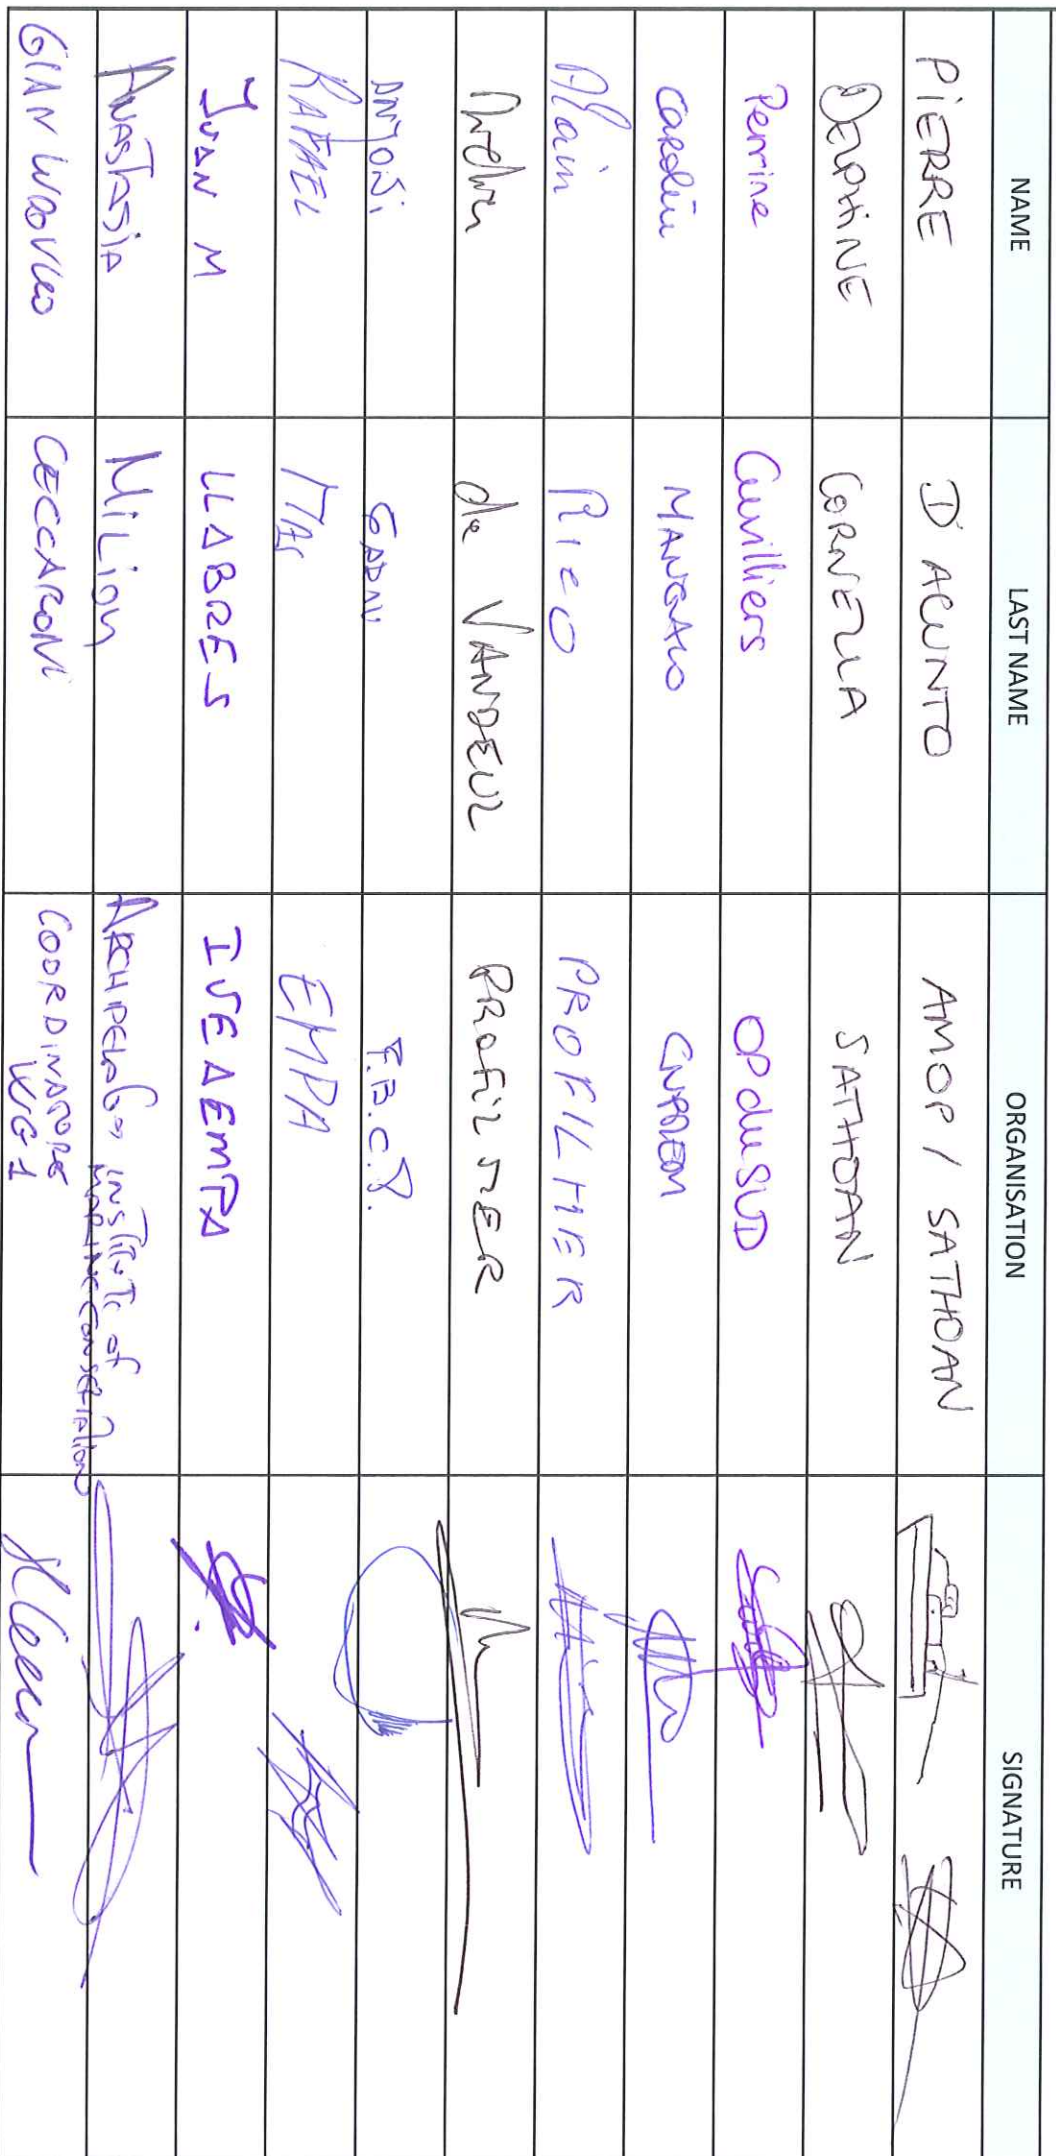 NAME LAST NAME ORGANISATION SIGNATURE
PIERRE D'ACUNTO AMOP / SATHOAN
DELPHINE CORNELLA SATHOAN
Perrine Cuvilliers OP du SUD
Caroline MANGALO CNPMEM
Alain RICO PROFILMER
de VANDEUL PROFILMER
ANTONI GARAU F.B.C.P.
RAFAEL MAS EMPA
JUAN M LLABRES IVEAEMPA
ANASTASIA MILIOU ARCHIPELAGOS INSTITUTE of
MARINE CONSERVATION
GIAN LUDOVICO CECCARONI COORDINATORE
WG1